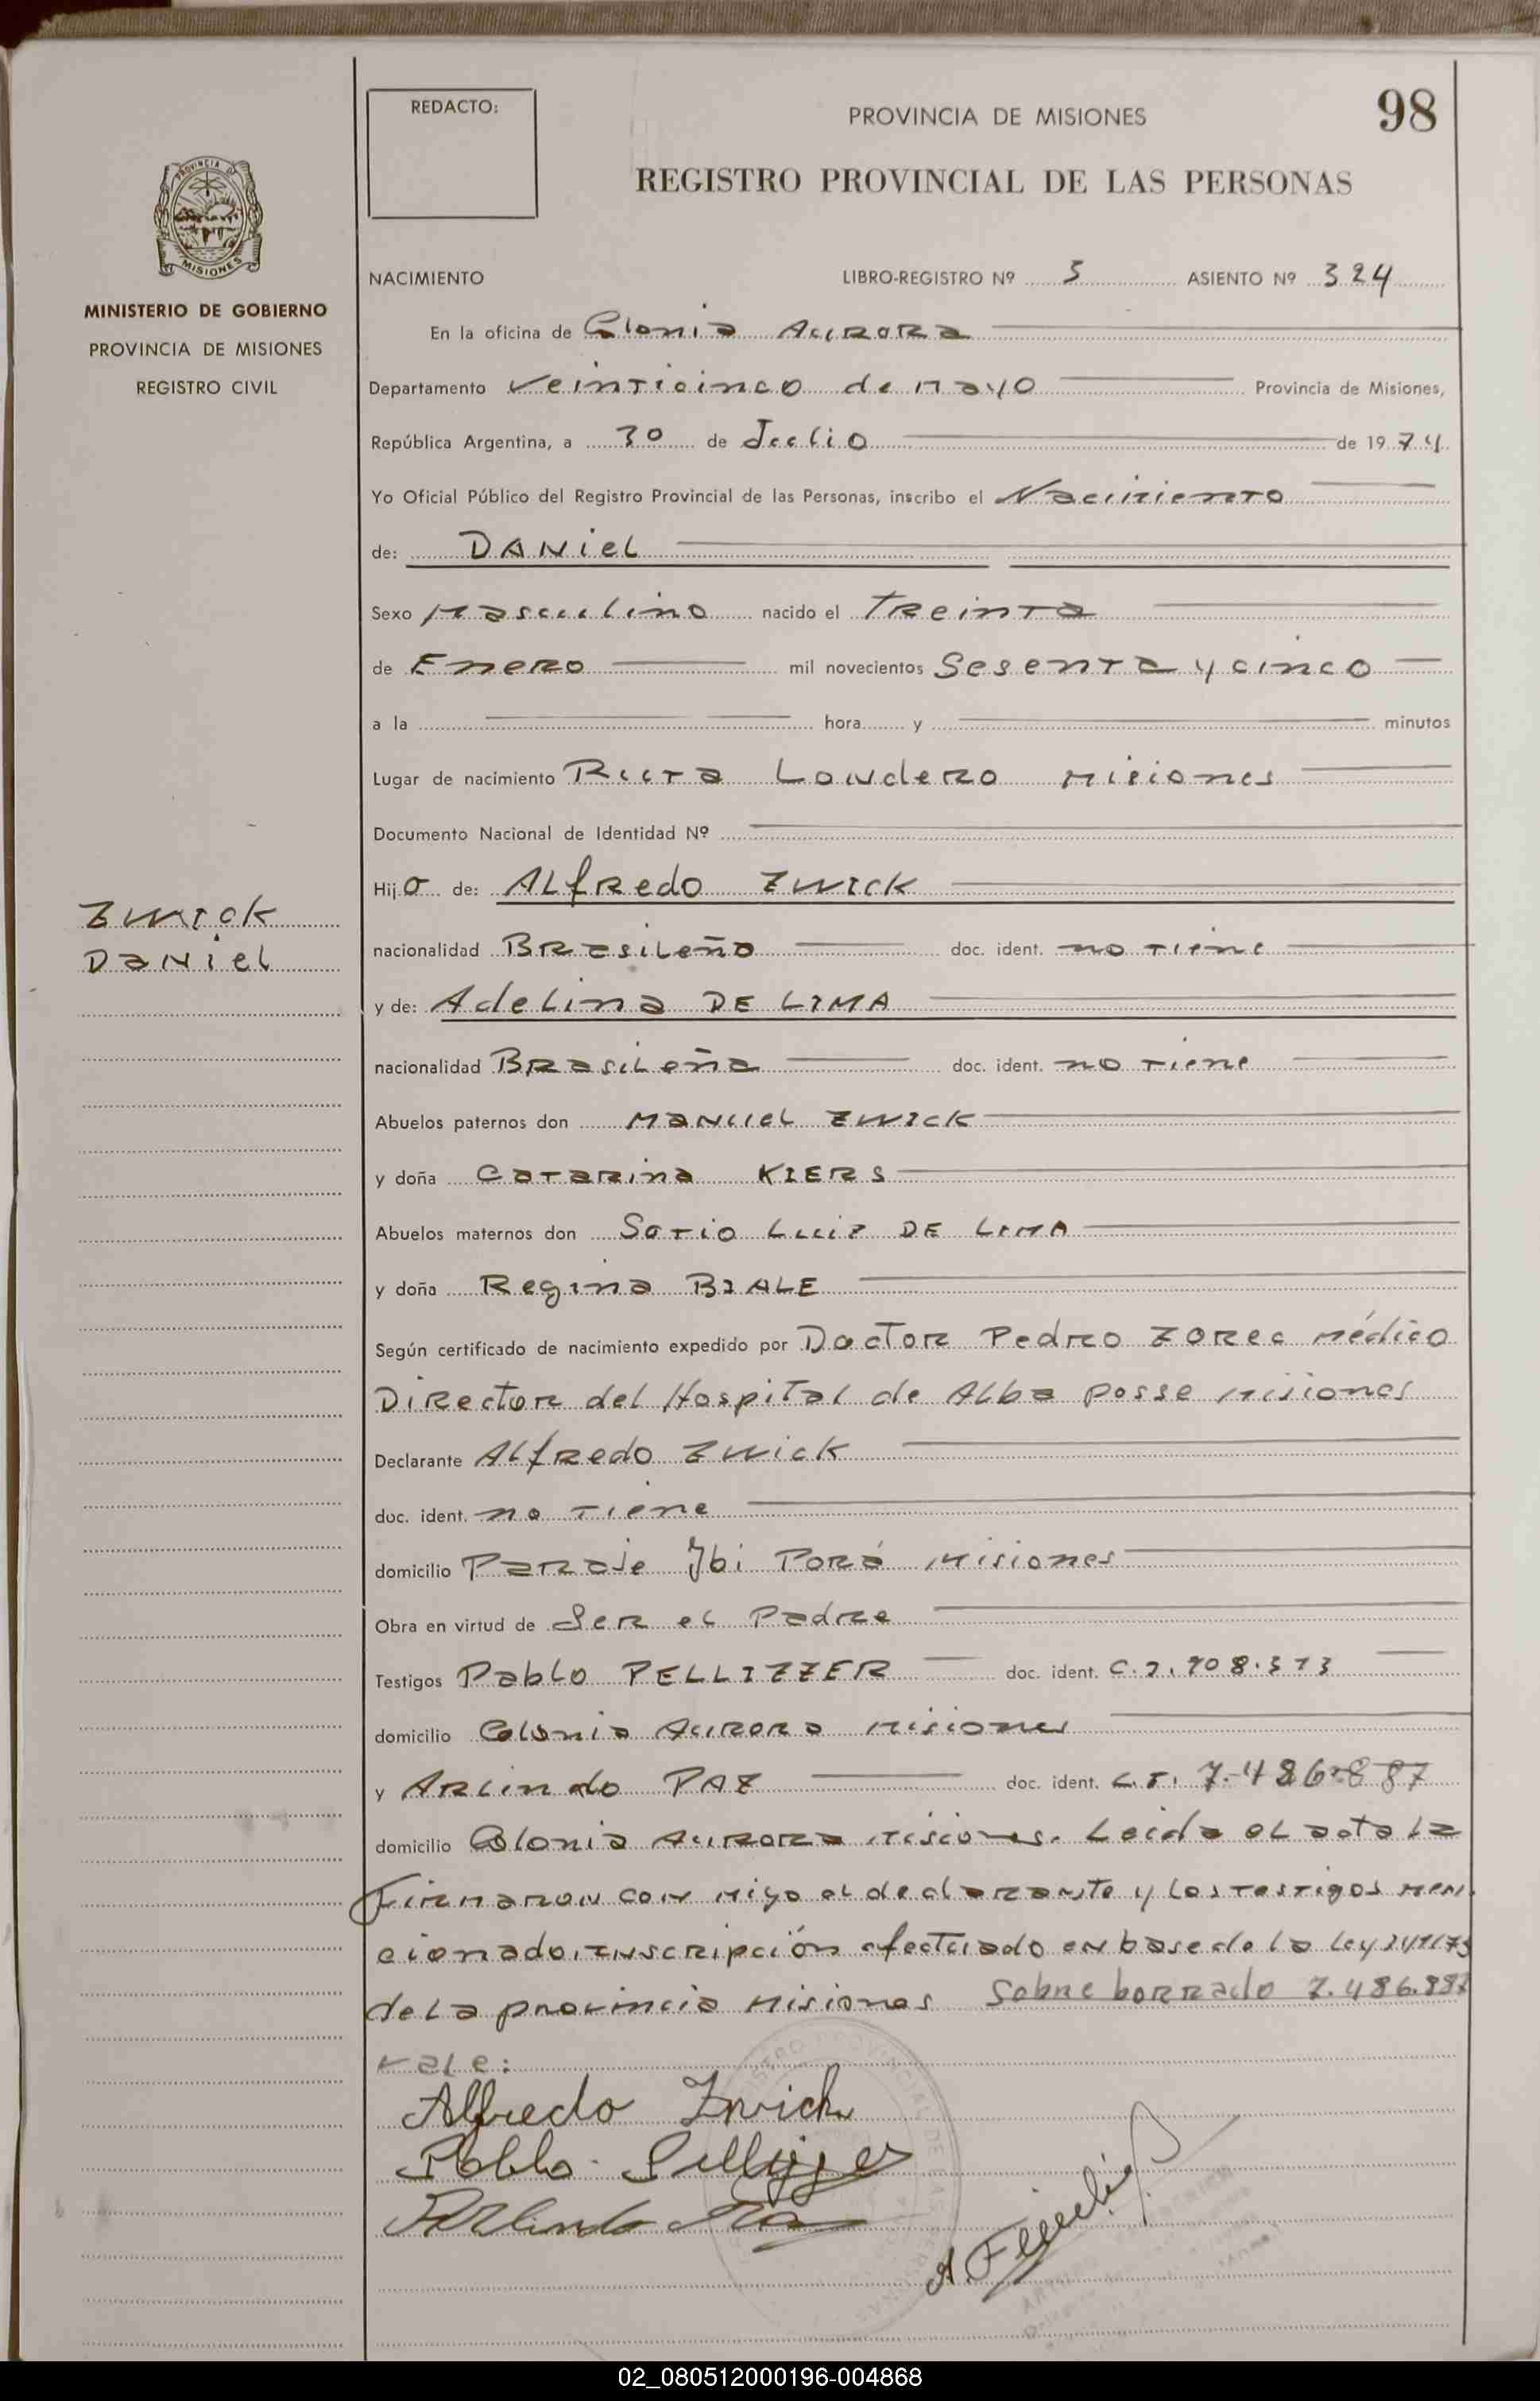 REDACTO:
PROVINCIA DE MISIONES
98
REGISTRO PROVINCIAL DE LAS PERSONAS
PROVINCIA DE
MISIONES
MINISTERIO DE GOBIERNO
PROVINCIA DE MISIONES
REGISTRO CIVIL
NACIMIENTO LIBRO-REGISTRO Nº 3 ASIENTO Nº 324
En la oficina de Colonia Aurora
Departamento Veinticinco de Mayo Provincia de Misiones,
República Argentina, a 30 de Julio de 1974
Yo Oficial Público del Registro Provincial de las Personas, inscribo el Nacimiento
de: DANiel
Sexo Masculino nacido el Treinta
de Enero mil novecientos Sesenta y cinco
a la hora y minutos
Lugar de nacimiento Ruta Londero Misiones
Documento Nacional de Identidad Nº
Hijo de: Alfredo ZWICK
Zwick
Daniel
nacionalidad Brasileño doc. ident. no tiene
y de: Adelina DE LIMA
nacionalidad Brasileña doc. ident. no tiene
Abuelos paternos don Manuel ZWICK
y doña Catarina KIERS
Abuelos maternos don Sotio Luiz DE LIMA
y doña Regina BIALE
Según certificado de nacimiento expedido por Doctor Pedro ZOREC Médico
Director del Hospital de Alba Posse Misiones
Declarante Alfredo Zwick
doc. ident. no tiene
domicilio Paraje Ybi Porá Misiones
Obra en virtud de Ser el Padre
Testigos Pablo PELLIZZER doc. ident. C.I.
domicilio Colonia Aurora Misiones
y Arlindo PAZ doc. ident. 7.486.887
domicilio Colonia Aurora Misiones. Leida el acta la
Firmaron con migo el declarante y los testigos men
cionado, inscripción efectuado en base de la Ley
de la provincia Misiones Sobre borrado 7.486.887
vale:
Alfredo Zwick
Pablo
Arlindo Paz
02_080512000196-004868